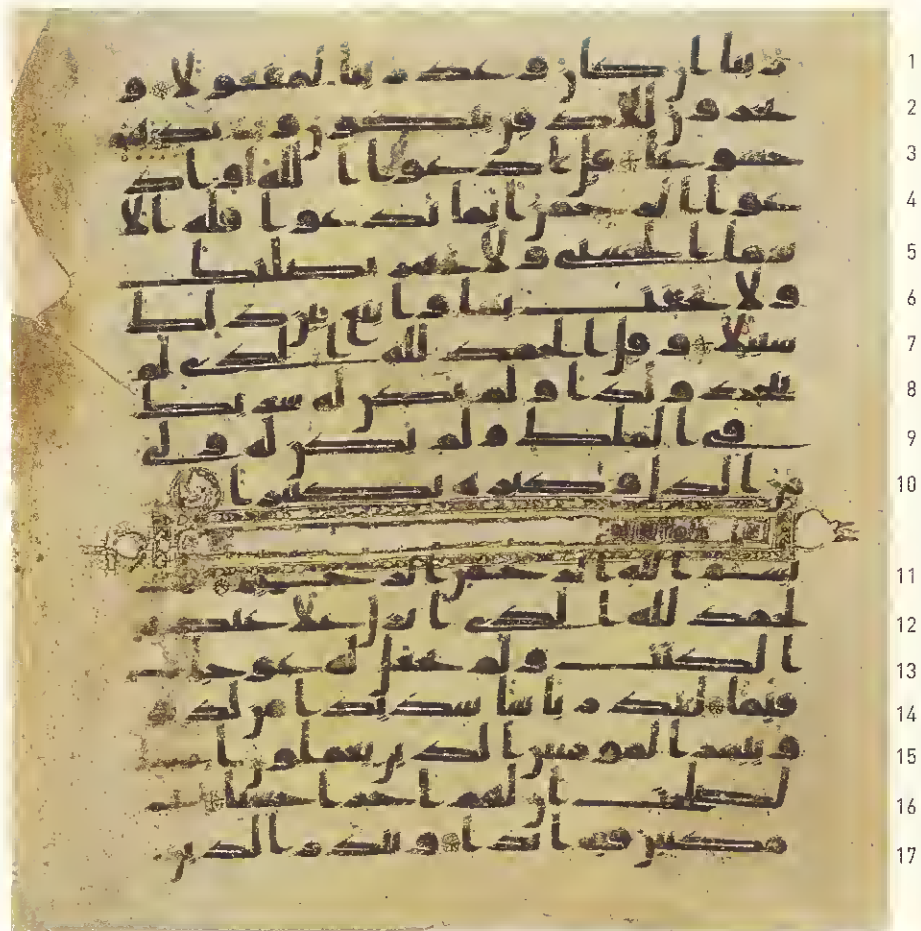 1 ربنا ان كان وعد ربنا لمفعولا و
2 يخرون للاذقن يبكون ويزيدهم
3 خشوعا قل ادعوا الله او اد
4 عوا الرحمن ايا ما تدعوا فله الا
5 سما الحسنى ولا تجهر بصلتك
6 ولا تخفت بها وابتغ بين ذلك
7 سبيلا وقل الحمد لله الذي لم
8 يتخذ ولدا ولم يكن له شريك
9 في الملك ولم يكن له ولي
10 من الذل وكبره تكبيرا
11 بسم الله الرحمن الرحيم ا
12 لحمد لله الذي انزل على عبده
13 الكتب ولم يجعل له عوجا
14 قيما لينذر باسا شديدا من لدنه
15 ويبشر المومنين الذين يعملون ا
16 لصلحت ان لهم اجرا حسنا
17 مكثين فيه ابدا وينذر الذين